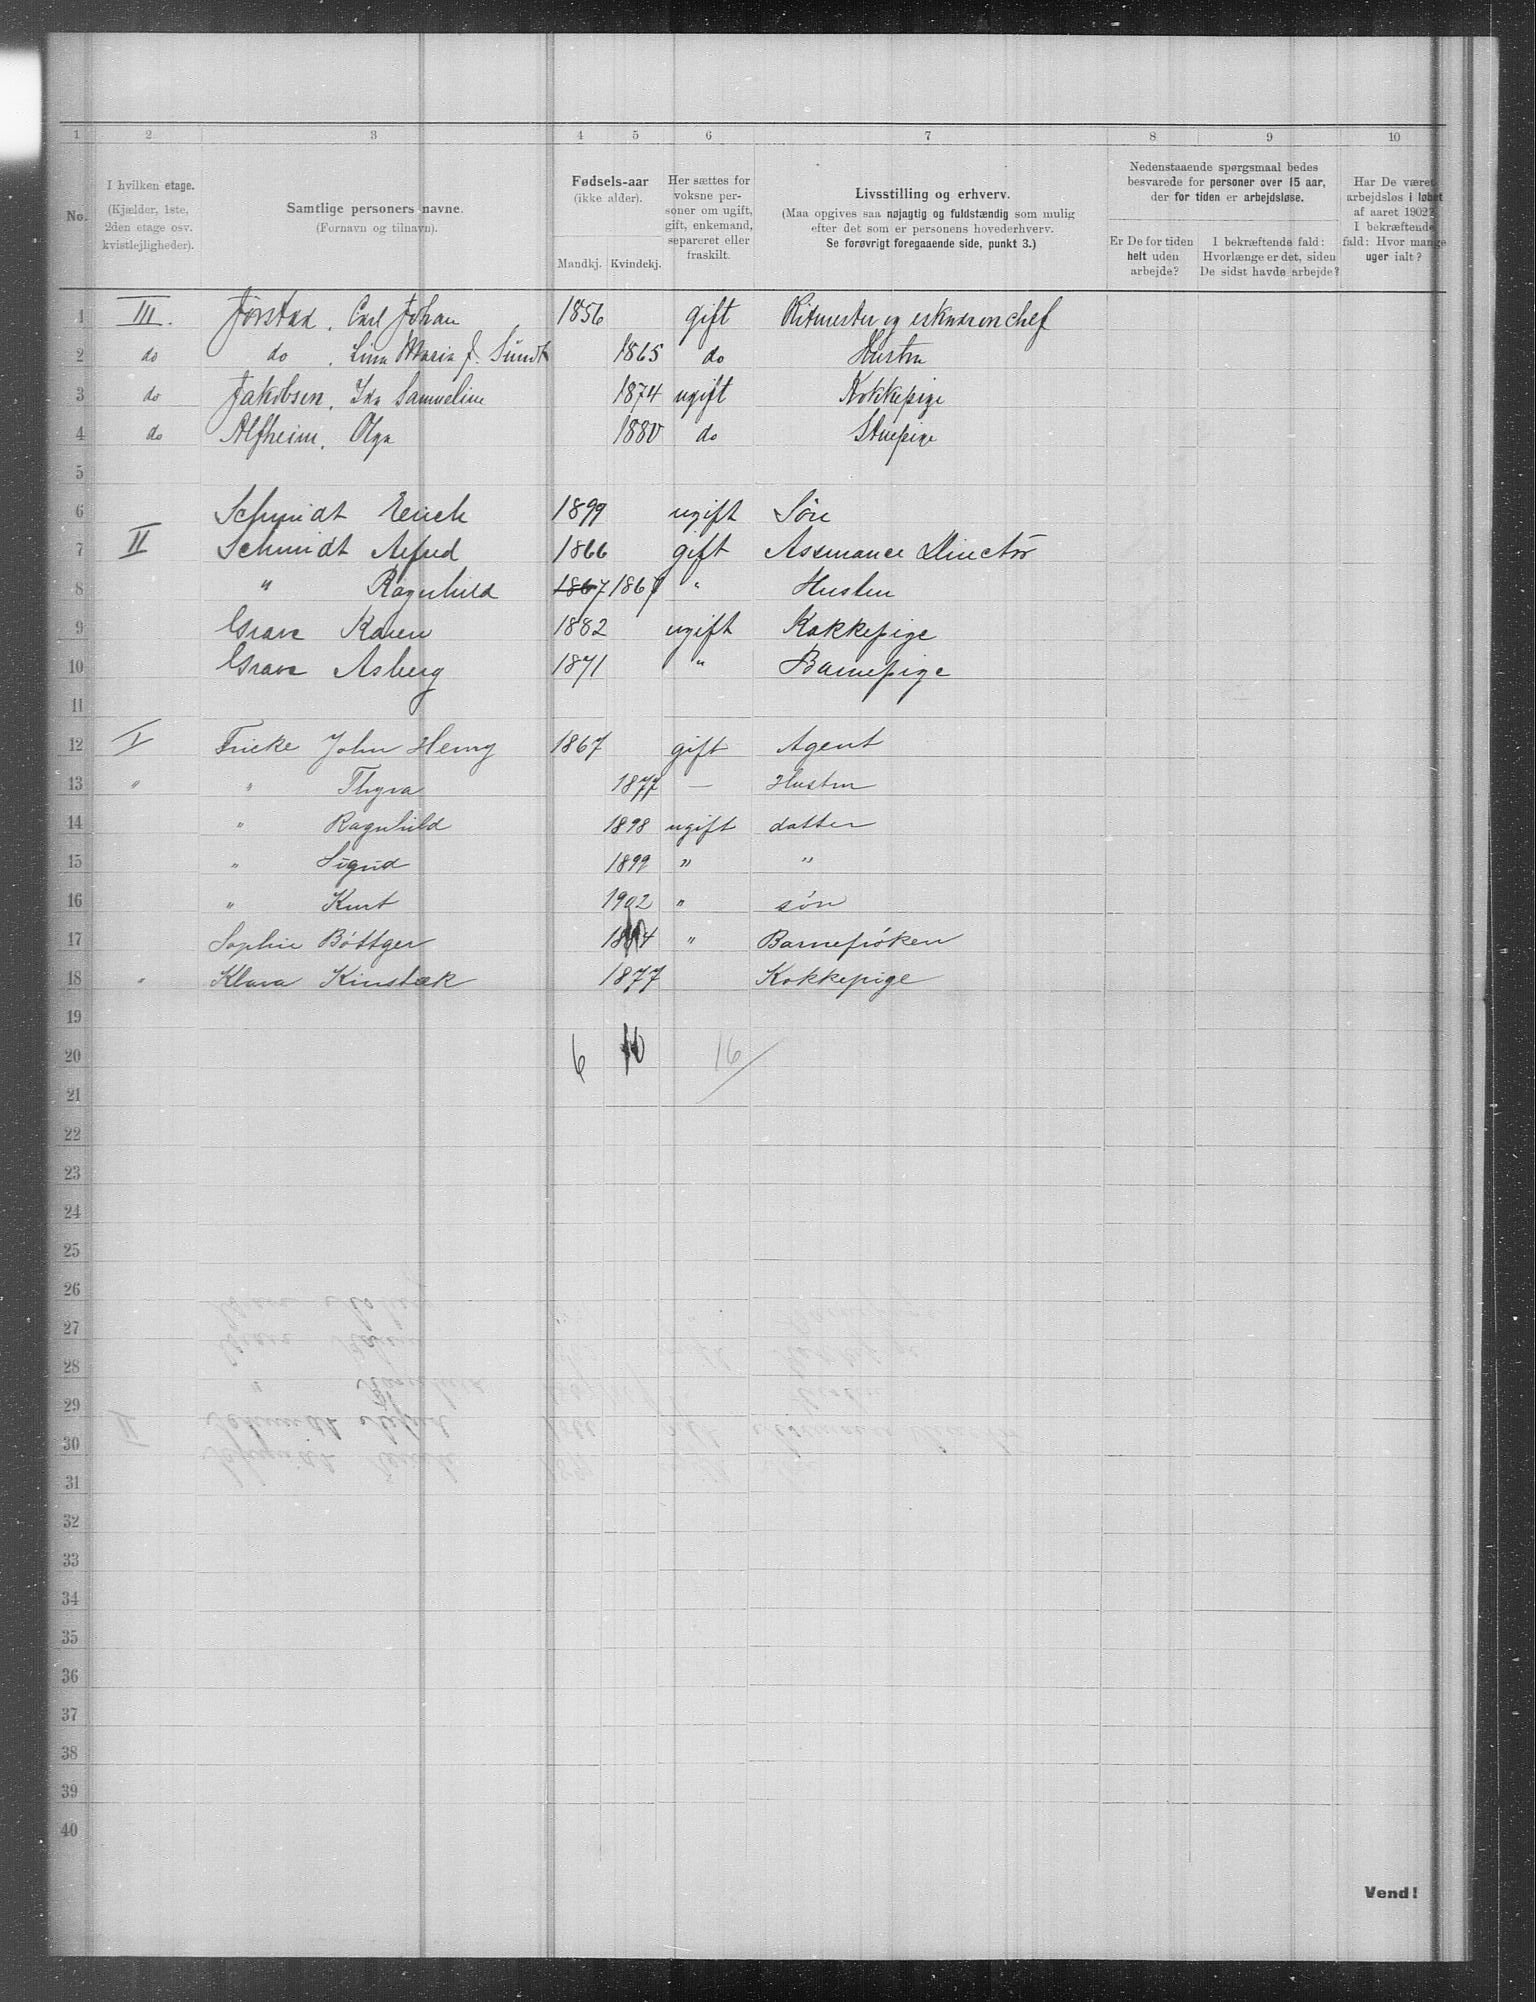 1 2 3 4 5 6 7 8 9 10
No.
I hvilken etage.
(Kjælder, 1ste,
2den etage osv.
kvistlejligheder).
Samtlige personers navne.
(Fornavn og tilnavn).
Fødsels-aar
(ikke alder).
Mandkj. Kvindekj.
Her sættes for
voksne per-
soner om ugift,
gift, enkemand,
separeret eller
fraskilt.
Livsstilling og erhverv.
(Maa opgives saa nøjagtig og fuldstændig som mulig
efter det som er personens hovederhverv.
Se forøvrigt foregaaende side, punkt 3.)
Nedenstaaende spørgsmaal bedes
besvarede for personer over 15 aar,
der for tiden er arbejdsløse.
Er De for tiden
helt uden
arbejde?
I bekræftende fald:
Hvorlænge er det, siden
De sidst havde arbejde?
Har De været
arbejdsløs i løbet
af aaret 1902?
I bekræftende
fald: Hvor mange
uger ialt?
1 III. Jørstad, Carl Johan 1856 gift Ritmester og eskadronchef
2 do do, Lina Maria f. Sundt 1865 do Hustru
3 do Jakobsen, Ida Samueline 1874 ugift Kokkepige
4 do Alfheim, Olga 1880 do Stuepige
5
6 Schmidt Erich 1899 ugift Søn
7 II Schmidt Alfred 1866 gift Assurance Director
8 " Ragnhild 1867 1867 " Hustru
9 Grava Karen 1882 ugift Kokkepige
10 Grava Asberg 1871 " Barnepige
11
12 I Fricke John Henry 1867 gift Agent
13 " " Thyra 1877 — Hustru
14 " Ragnhild 1898 ugift datter
15 " Sigrid 1899 " "
16 " Kurt 1902 " søn
17 Sophie Böttger 1884 " Barnefrøken
18 " Klara Kinstæk 1877 Kokkepige
19
20 6 10 16
21
22
23
24
25
26
27
28
29
30
31
32
33
34
35
36
37
38
39
40
Vend!